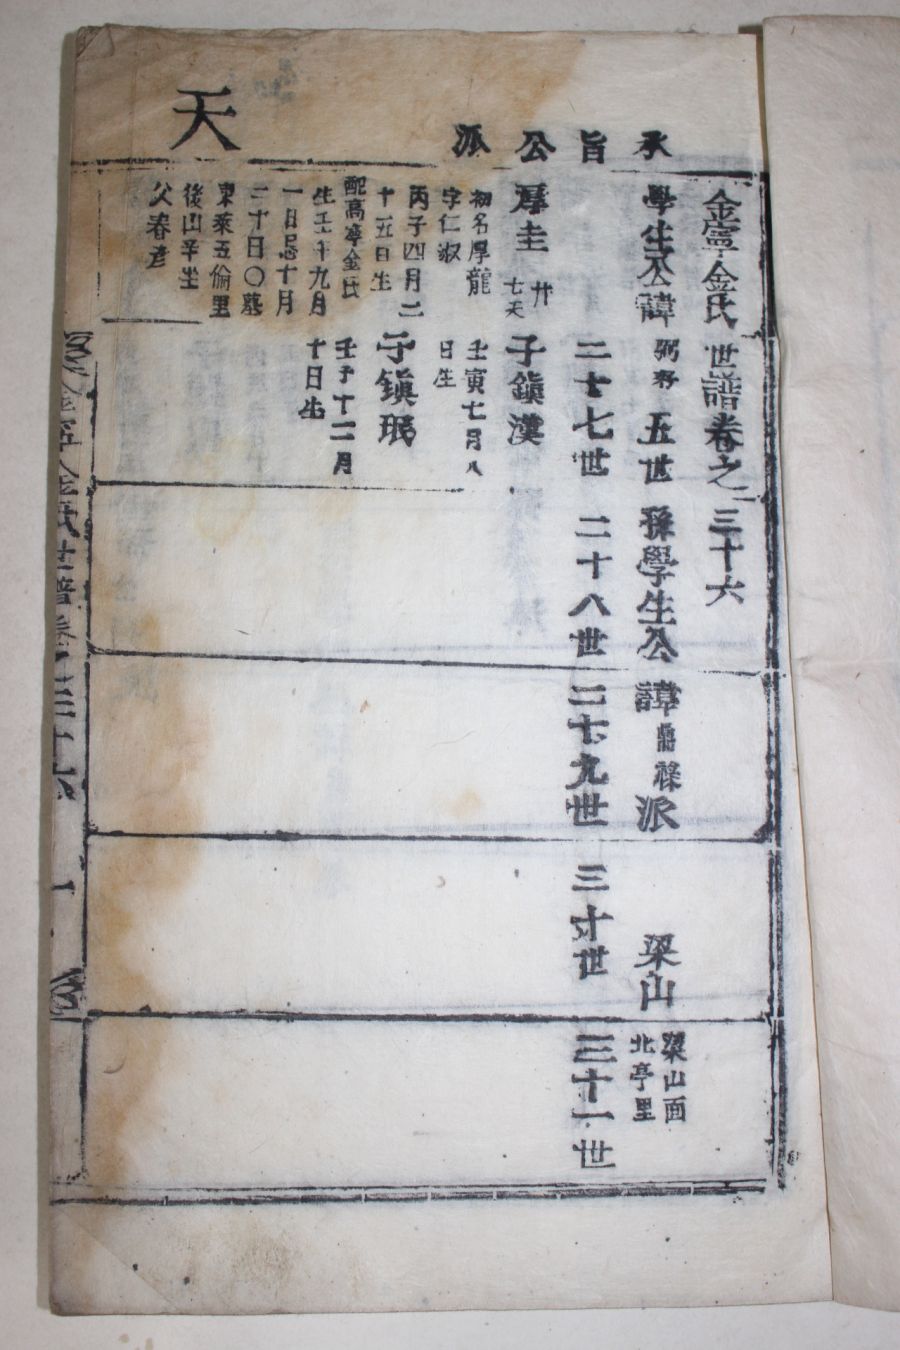 天
承旨公派
金寧金氏世譜卷之三十六
學生公諱弼 五世孫學生公諱鼎祿派 梁山
梁山面
北亭里
二十七世 二十八世 二十九世 三十世 三十一世
厚圭 廿
七天
初名厚龍
字仁淑
丙子四月二
十五日生
配高寧金氏
生壬午九月
一日忌十月
二十日〇墓
東萊五倫里
後山辛坐
父春彦
子鎭漢
壬寅七月八
日生
子鎭珉
壬子十二月
十日生
金寧金氏世譜卷之三十六 一